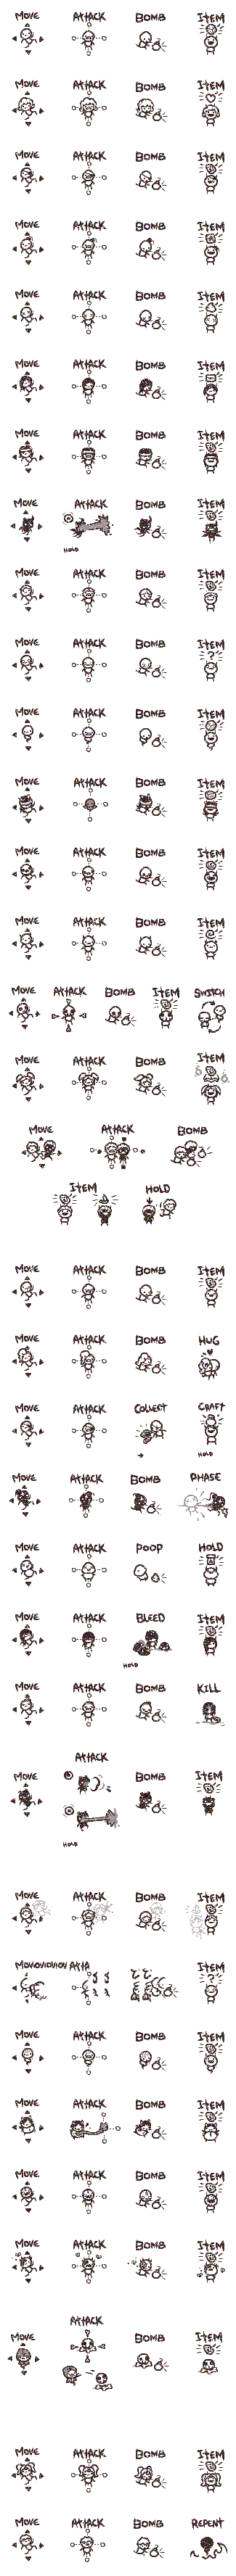 MOVE ATTACK BOMB ITEM
MOVE ATTACK BOMB ITEM
MOVE ATTACK BOMB ITEM
MOVE ATTACK BOMB ITEM
MOVE ATTACK BOMB ITEM
MOVE ATTACK BOMB ITEM
MOVE ATTACK BOMB ITEM
MOVE ATTACK BOMB ITEM
HOLD
MOVE ATTACK BOMB ITEM
MOVE ATTACK BOMB ITEM
?
MOVE ATTACK BOMB ITEM
MOVE ATTACK BOMB ITEM
MOVE ATTACK BOMB ITEM
MOVE ATTACK BOMB ITEM
MOVE ATTACK BOMB ITEM SWITCH
MOVE ATTACK BOMB ITEM
MOVE ATTACK BOMB
ITEM HOLD
MOVE ATTACK BOMB ITEM
MOVE ATTACK BOMB HUG
MOVE ATTACK COLLECT CRAFT
HOLD
MOVE ATTACK BOMB PHASE
MOVE ATTACK POOP HOLD
MOVE ATTACK BLEED ITEM
HOLD
MOVE ATTACK BOMB KILL
ATTACK
MOVE BOMB ITEM
HOLD
MOVE ATTACK BOMB ITEM
MOVOVOVOVOV ATTA ITEM
?
MOVE ATTACK BOMB ITEM
MOVE ATTACK BOMB ITEM
MOVE ATTACK BOMB ITEM
MOVE ATTACK BOMB ITEM
ATTACK
MOVE BOMB ITEM
MOVE ATTACK BOMB ITEM
MOVE ATTACK BOMB REPENT